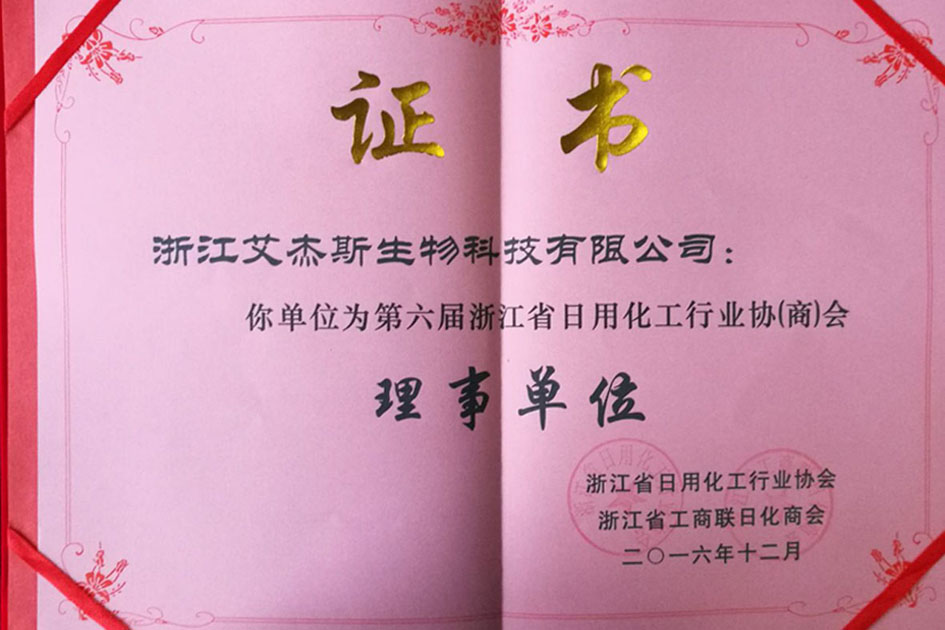 证书
浙江艾杰斯生物科技有限公司：
你单位为第六届浙江省日用化工行业协(商)会
理事单位
浙江省日用化工行业协会
浙江省工商联日化商会
二〇一六年十二月